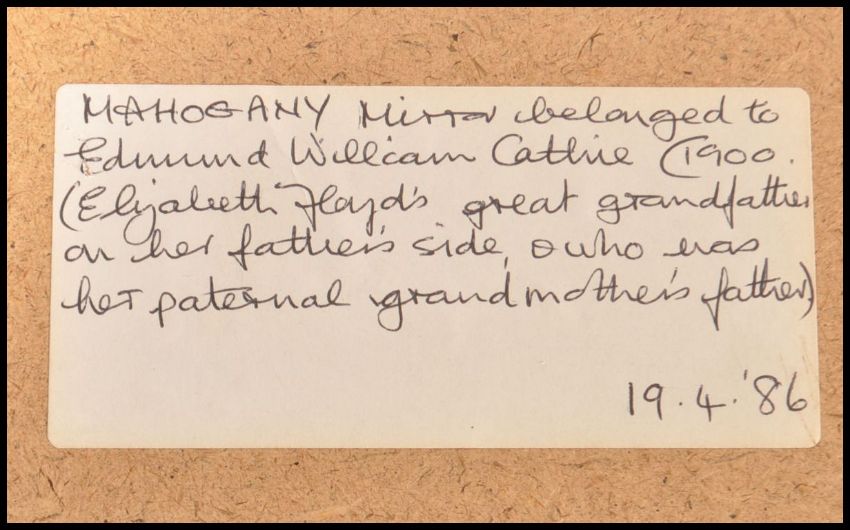 MAHOGANY Mirror belonged to
Edmund William Cathie (1900.
(Elizabeth Floyd's great grandfather
on her father's side, & who was
her paternal grandmother's father)
19.4.'86